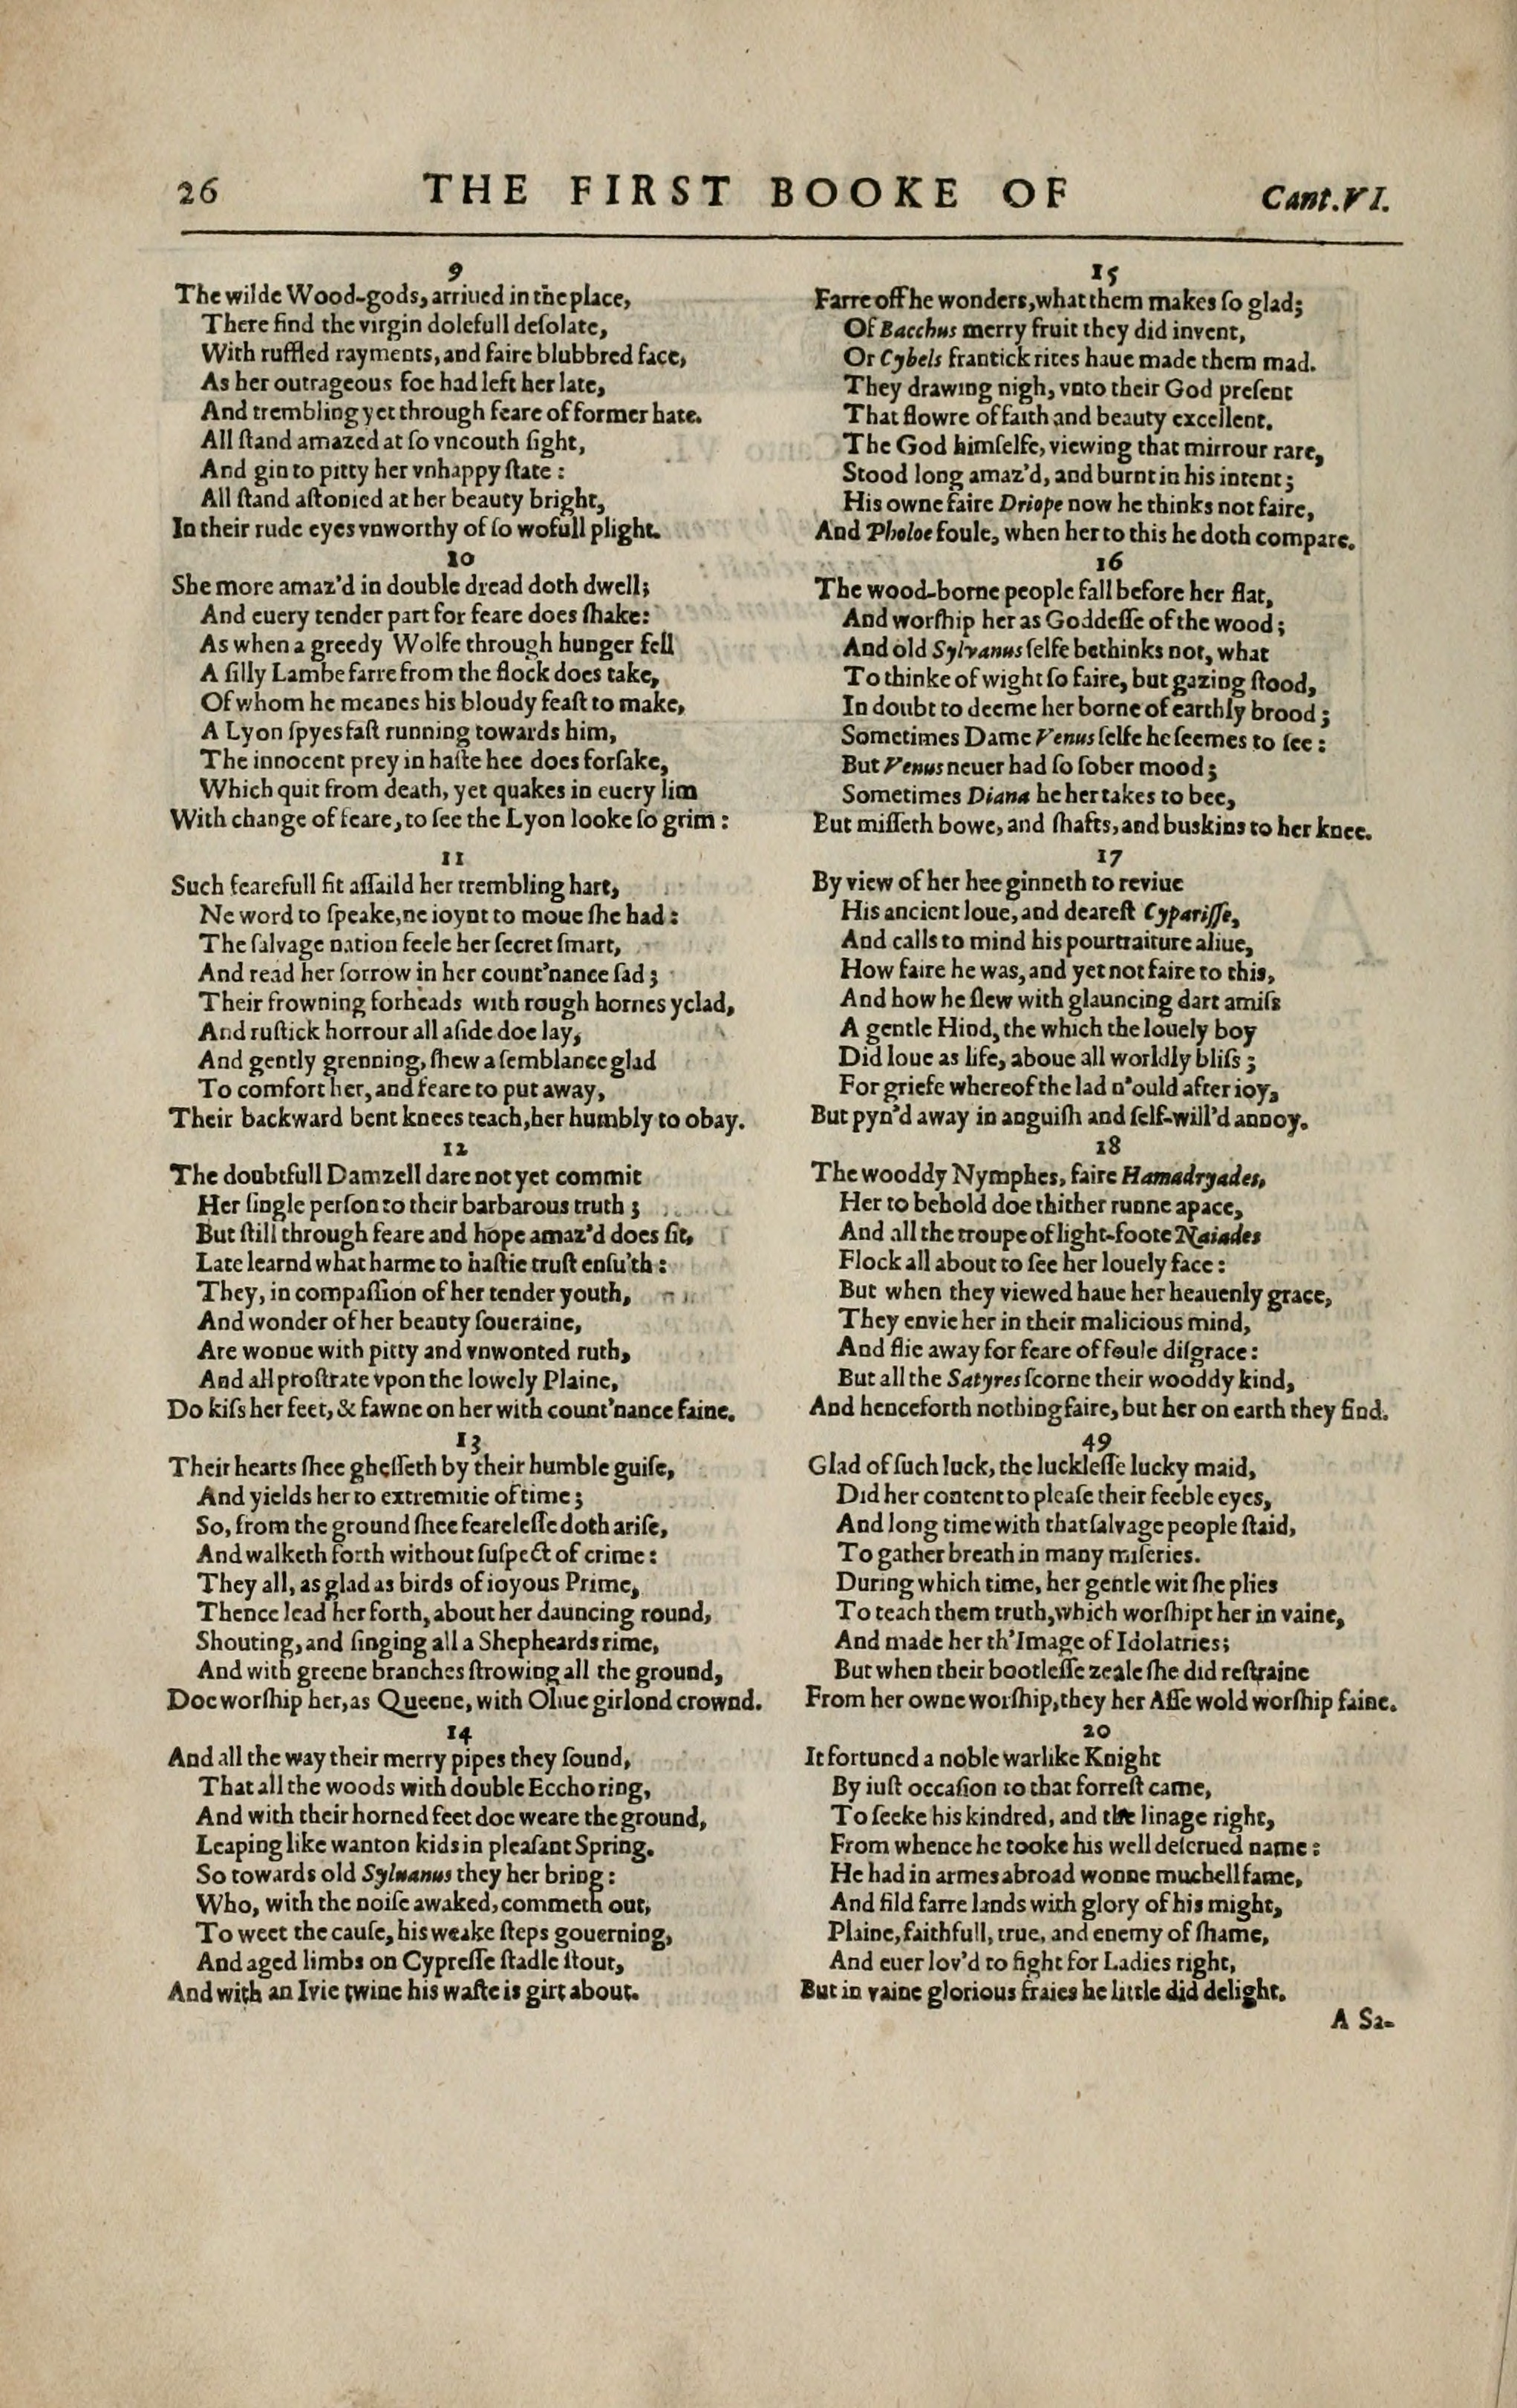 26 THE FIRST BOOKE OF Cant.VI.
9
The wilde Wood-gods, arriued in the place,
There find the virgin dolefull deſolate,
With ruffled rayments, and faire blubbred face,
As her outrageous foe had left her late,
And trembling yet through feare of former hate.
All ſtand amazed at ſo vncouth ſight,
And gin to pitty her vnhappy ſtate:
All ſtand aſtonied at her beauty bright,
In their rude eyes vnworthy of ſo wofull plight.
10
She more amaz'd in double dread doth dwell;
And euery tender part for feare does ſhake:
As when a greedy Wolfe through hunger fell
A ſilly Lambe farre from the flock does take,
Of whom he meanes his bloudy feaſt to make,
A Lyon ſpyes faſt running towards him,
The innocent prey in haſte hee does forſake,
Which quit from death, yet quakes in euery lim
With change of feare, to ſee the Lyon looke ſo grim:
11
Such fearefull fit aſſaild her trembling hart,
Ne word to ſpeake, ne ioynt to moue ſhe had:
The ſalvage nation feele her ſecret ſmart,
And read her ſorrow in her count'nance ſad;
Their frowning forheads with rough hornes yclad,
And ruſtick horrour all aſide doe lay,
And gently grenning, ſhew a ſemblance glad
To comfort her, and feare to put away,
Their backward bent knees teach, her humbly to obay.
12
The doubtfull Damzell dare not yet commit
Her ſingle perſon to their barbarous truth;
But ſtill through feare and hope amaz'd does ſit,
Late learnd what harme to haſtie truſt enſu'th:
They, in compaſſion of her tender youth,
And wonder of her beauty ſoueraine,
Are wonne with pitty and vnwonted ruth,
And all proſtrate vpon the lowely Plaine,
Do kiſs her feet, & fawne on her with count'nance faine.
13
Their hearts ſhee gheſſeth by their humble guiſe,
And yields her to extremitie of time;
So, from the ground ſhee feareleſſe doth ariſe,
And walketh forth without ſuſpect of crime:
They all, as glad as birds of ioyous Prime,
Thence lead her forth, about her dauncing round,
Shouting, and ſinging all a Shepheards rime,
And with greene branches ſtrowing all the ground,
Doe worſhip her, as Queene, with Oliue girlond crownd.
14
And all the way their merry pipes they ſound,
That all the woods with double Eccho ring,
And with their horned feet doe weare the ground,
Leaping like wanton kids in pleaſant Spring.
So towards old Syluanus they her bring:
Who, with the noiſe awaked, commeth out,
To weet the cauſe, his weake ſteps gouerning,
And aged limbs on Cypreſſe ſtadle ſtout,
And with an Ivie twine his waſte is girt about.
15
Farre off he wonders, what them makes ſo glad;
Of Bacchus merry fruit they did invent,
Or Cybels frantick rites haue made them mad.
They drawing nigh, vnto their God preſent
That flowre of faith and beauty excellent.
The God himſelfe, viewing that mirrour rare,
Stood long amaz'd, and burnt in his intent;
His owne faire Driope now he thinks not faire,
And Pholoe foule, when her to this he doth compare.
16
The wood-borne people fall before her flat,
And worſhip her as Goddeſſe of the wood;
And old Sylvanus ſelfe bethinks not, what
To thinke of wight ſo faire, but gazing ſtood,
In doubt to deeme her borne of earthly brood;
Sometimes Dame Venus ſelfe he ſeemes to ſee:
But Venus neuer had ſo ſober mood;
Sometimes Diana he her takes to bee,
But miſſeth bowe, and ſhafts, and buskins to her knee.
17
By view of her hee ginneth to reviue
His ancient loue, and deareſt Cypariſſe,
And calls to mind his pourtraiture aliue,
How faire he was, and yet not faire to this,
And how he ſlew with glauncing dart amiſs
A gentle Hind, the which the louely boy
Did loue as life, aboue all worldly bliſs;
For griefe whereof the lad n'ould after ioy,
But pyn'd away in anguiſh and ſelf-will'd annoy.
18
The wooddy Nymphes, faire Hamadryades,
Her to behold doe thither runne apace,
And all the troupe of light-foote Naiades
Flock all about to ſee her louely face:
But when they viewed haue her heauenly grace,
They envie her in their malicious mind,
And flie away for feare of foule diſgrace:
But all the Satyres ſcorne their wooddy kind,
And henceforth nothing faire, but her on earth they find.
49
Glad of ſuch luck, the luckleſſe lucky maid,
Did her content to pleaſe their feeble eyes,
And long time with that ſalvage people ſtaid,
To gather breath in many miſeries.
During which time, her gentle wit ſhe plies
To teach them truth, which worſhipt her in vaine,
And made her th'Image of Idolatries;
But when their bootleſſe zeale ſhe did reſtraine
From her owne worſhip, they her Aſſe wold worſhip faine.
20
It fortuned a noble warlike Knight
By iuſt occaſion to that forreſt came,
To ſeeke his kindred, and the linage right,
From whence he tooke his well deſerued name:
He had in armes abroad wonne muchell fame,
And fild farre lands with glory of his might,
Plaine, faithfull, true, and enemy of ſhame,
And euer lov'd to fight for Ladies right,
But in vaine glorious fraies he little did delight.
A Sa-